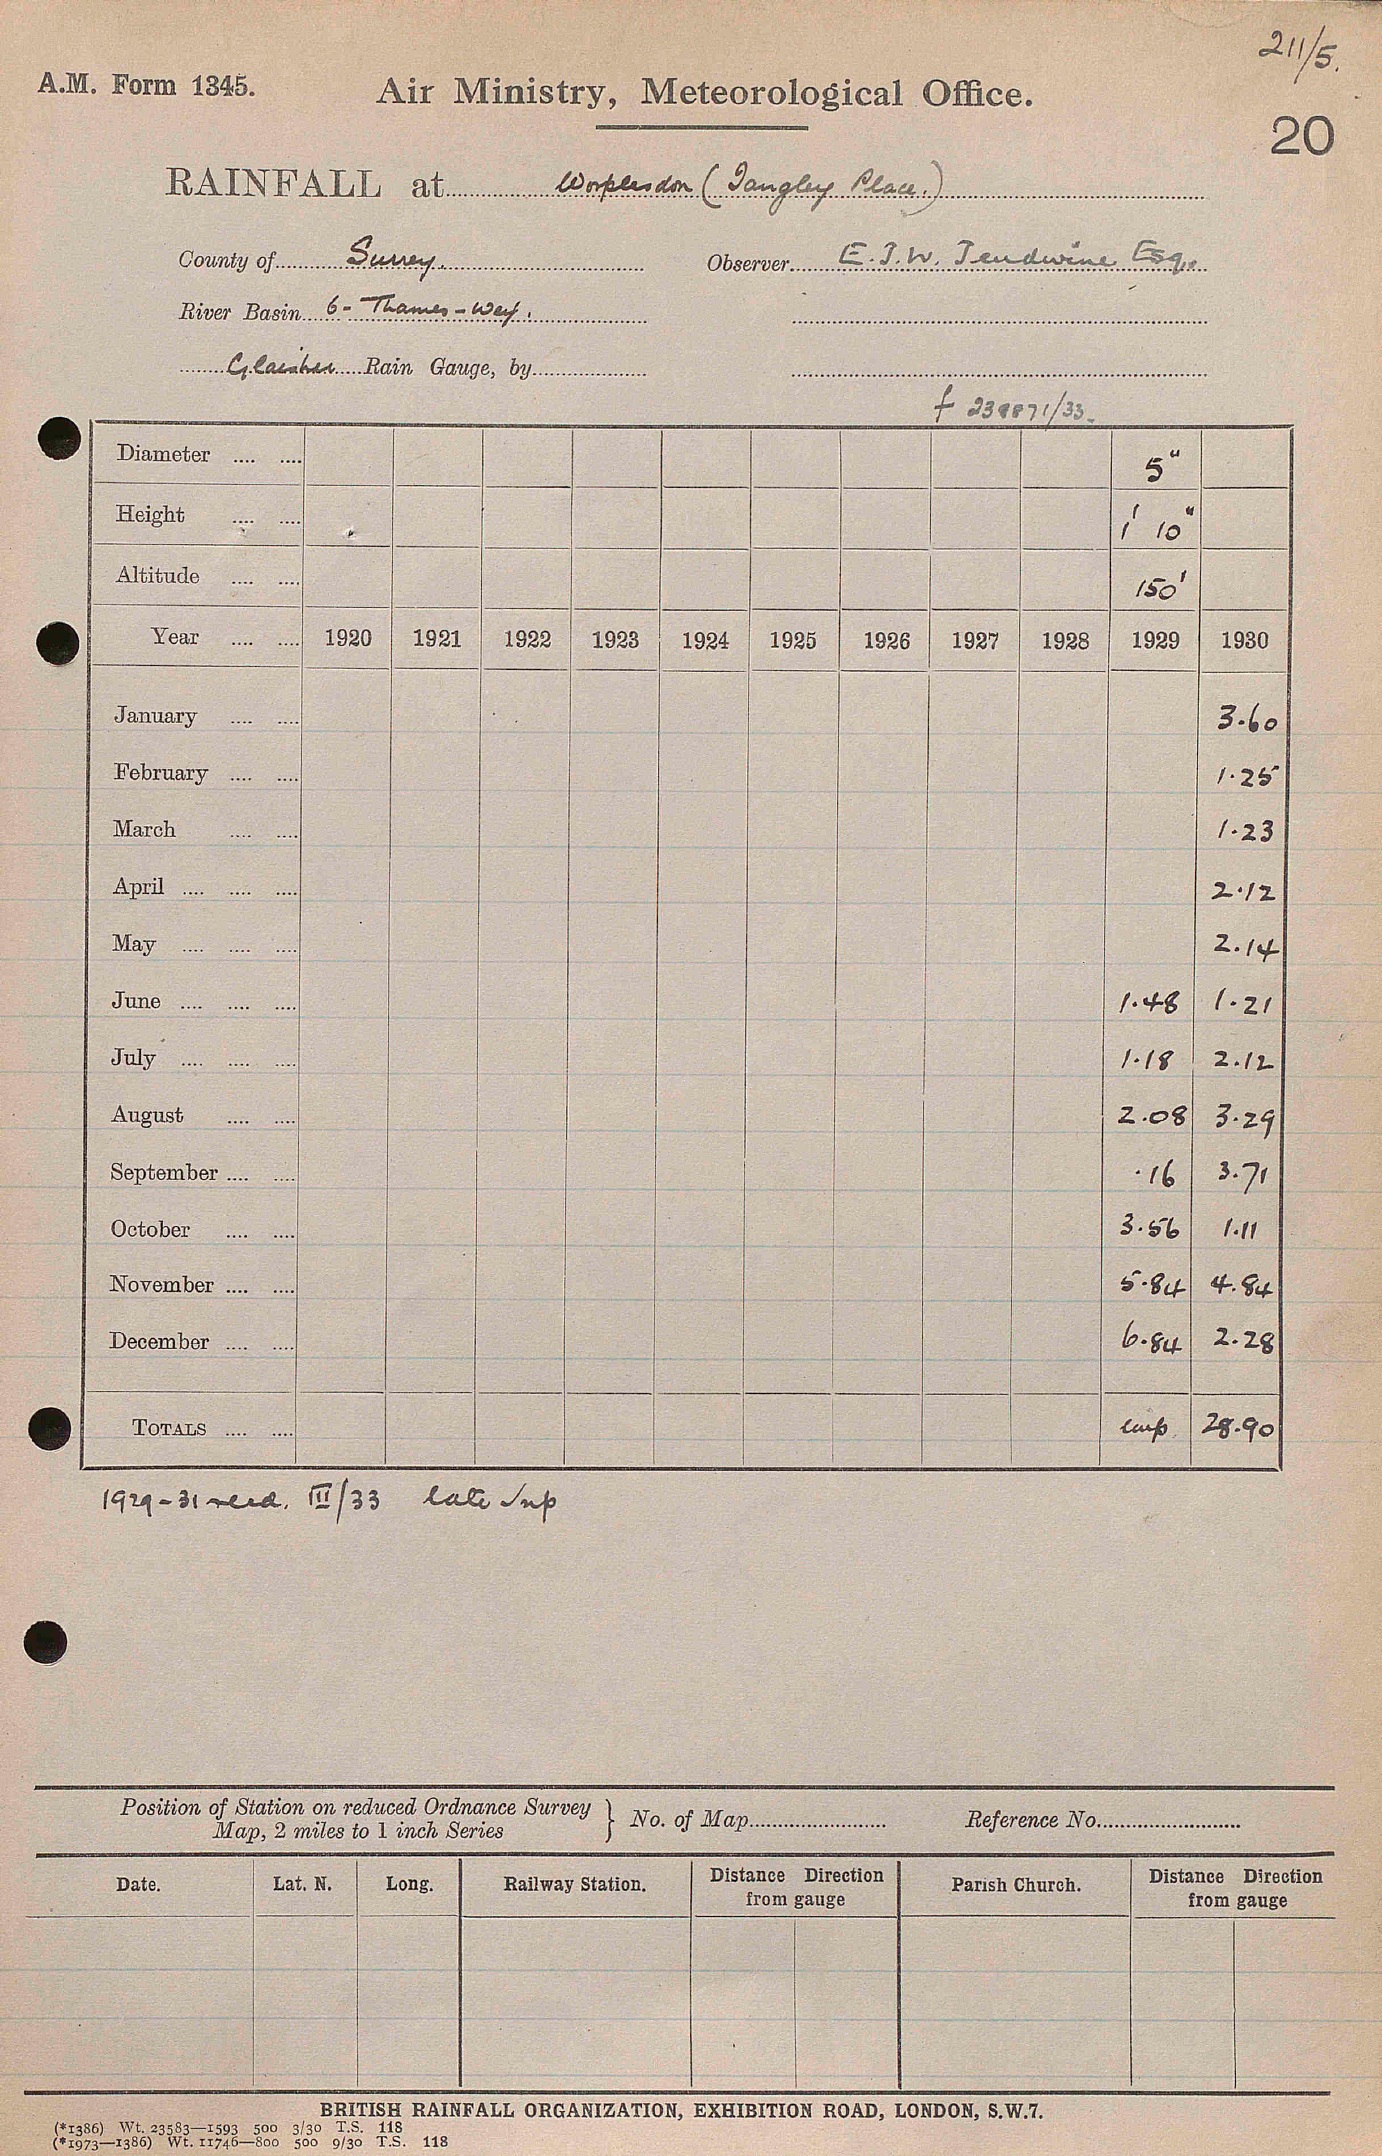 211/5.
A.M. Form 1345. Air Ministry, Meteorological Office.
20
RAINFALL at Worplesdon (Tangley Place.)
County of Surrey. Observer E. J. W. Tendwine Esq.
River Basin 6 - Thames - Wey.
Glaisher Rain Gauge, by
f 239871/33
Diameter .... .... 5"
Height .... .... 1' 10"
Altitude .... .... 150'
Year .... .... 1920 1921 1922 1923 1924 1925 1926 1927 1928 1929 1930
January .... .... 3.60
February .... .... 1.25
March .... .... 1.23
April .... .... .... 2.12
May .... .... .... 2.14
June .... .... .... 1.48 1.21
July .... .... .... 1.18 2.12
August .... .... 2.08 3.29
September .... .... .16 3.71
October .... .... 3.56 1.11
November .... .... 5.84 4.84
December .... .... 6.84 2.28
TOTALS .... .... 28.90
1929-31 recd. III/33 late Sup
Position of Station on reduced Ordnance Survey
Map, 2 miles to 1 inch Series } No. of Map Reference No.
Date. Lat. N. Long. Railway Station. Distance Direction from gauge Parish Church. Distance Direction from gauge
BRITISH RAINFALL ORGANIZATION, EXHIBITION ROAD, LONDON, S.W.7.
(*1386) Wt. 23583—1593 500 3/30 T.S. 118
(*1973—1386) Wt. 11746—800 500 9/30 T.S. 118